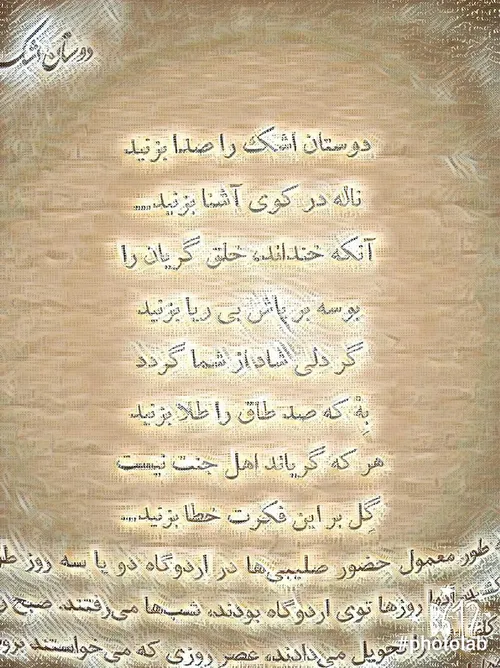 دوستان اشک
دوستان اشک را صدا بزنید
ناله در کوی آشنا بزنید......
آنکه خنداند، خلق گریان را
بوسه بر پاش بی ریا بزنید
گر دلی شاد از شما گردد
بِهْ که صد طاق را طلا بزنید
هر که گریاند اهل جنت نیست
گِل بر این فکرت خطا بزنید....
طور معمول حضور صلیبی‌ها در اردوگاه دو یا سه روز
روزها توی اردوگاه بودند، شب‌ها می‌رفتند. صبح
تحویل می‌دادند، عصر روزی که می‌خواستند
#photolab